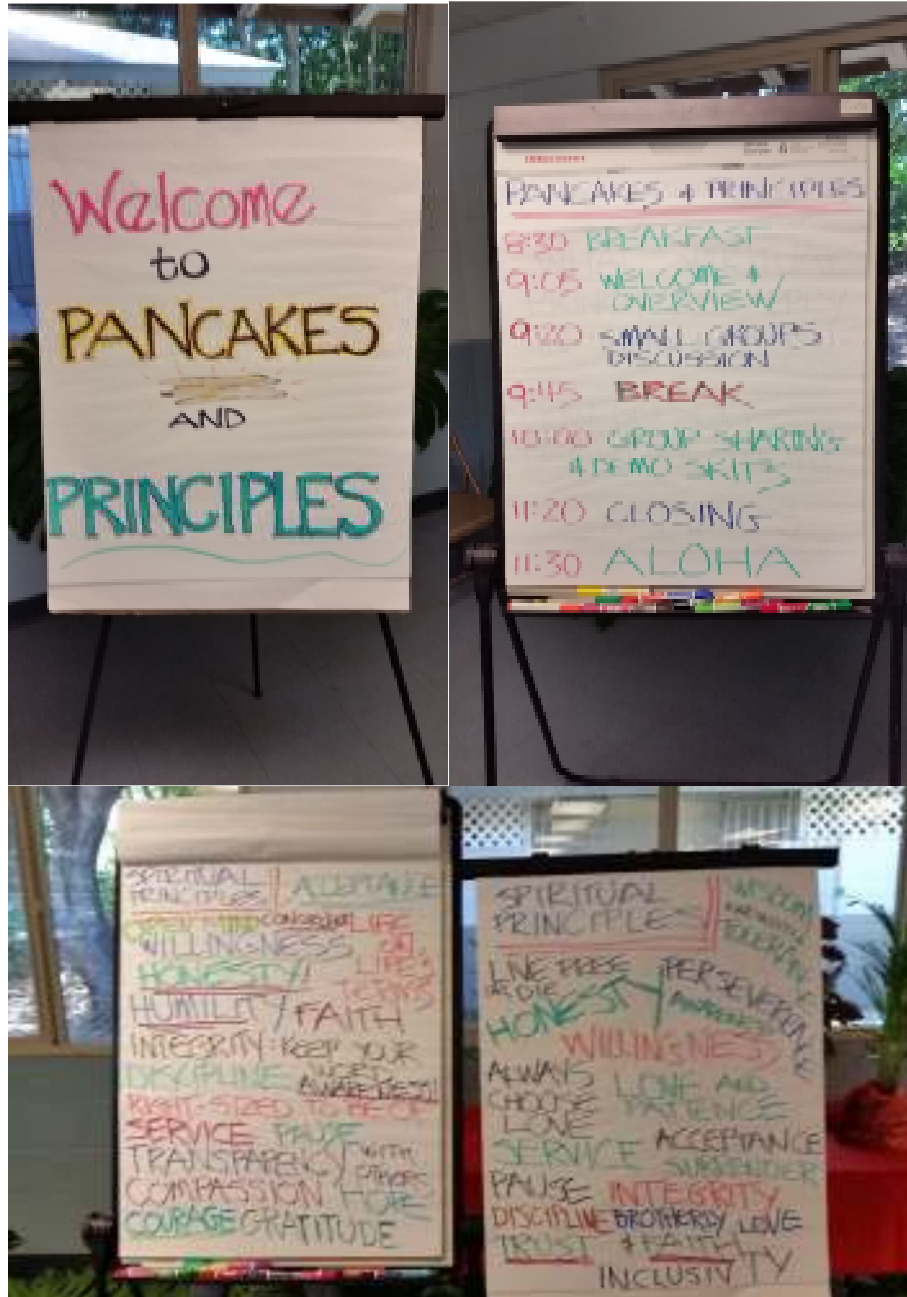 Welcome
to
PANCAKES
AND
PRINCIPLES
PANCAKES & PRINCIPLES
8:30 BREAKFAST
9:05 WELCOME &
OVERVIEW
9:20 SMALL GROUPS
DISCUSSION
9:45 BREAK
10:00 GROUP SHARING
& DEMO SKITS
11:20 CLOSING
11:30 ALOHA
SPIRITUAL
PRINCIPLES
ACCEPTANCE
OPEN MIND
LIFE
ON
LIFE'S
TERMS
WILLINGNESS
HONESTY!
HUMILITY / FAITH
INTEGRITY: KEEP YOUR
WORD
DISCIPLINE AWARENESS!
RIGHT-SIZED TO BE OF
SERVICE PAUSE
TRANSPARENCY WITH
OTHERS
COMPASSION HOPE
COURAGE GRATITUDE
SPIRITUAL
PRINCIPLE
WISDOM
LIVE FREE
OR DIE
PERSEVERENCE
HONESTY
WILLINGNESS
ALWAYS
CHOOSE
LOVE
LOVE AND
PATIENCE
SERVICE ACCEPTANCE
SURRENDER
PAUSE INTEGRITY
DISCIPLINE BROTHERLY LOVE
TRUST & FAITH
INCLUSIVITY